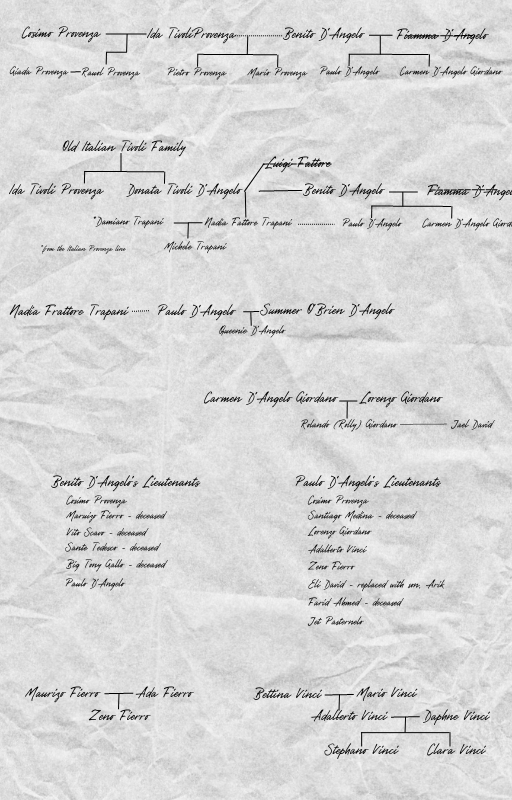 Cosimo Provenza Ida Tivoli Provenza Benito D'Angelo Fiamma D'Angelo
Giada Provenza Rauel Provenza Pietro Provenza Mario Provenza Paulo D'Angelo Carmen D'Angelo Giordano
Old Italian Tivoli Family
Luigi Fattore
Ida Tivoli Provenza Donata Tivoli D'Angelo Benito D'Angelo Fiamma D'Angel
*Damiano Trapani Nadia Fattore Trapani Paulo D'Angelo Carmen D'Angelo Giord
*from the Italian Provenza line Michele Trapani
Nadia Frattore Trapani Paulo D'Angelo Summer O'Brien D'Angelo
Queenie D'Angelo
Carmen D'Angelo Giordano Lorenzo Giordano
Rolando (Rolly) Giordano Jael David
Benito D'Angelo's Lieutenants
Cosimo Provenza
Maruizo Fierro - deceased
Vito Scavo - deceased
Santo Tedesco - deceased
Big Tony Gallo - deceased
Paulo D'Angelo
Paulo D'Angelo's Lieutenants
Cosimo Provenza
Santiago Medina - deceased
Lorenzo Giordano
Adalberto Vinci
Zeno Fierro
Eli David - replaced with son, Arik
Farid Ahmed - deceased
Jet Pasternelo
Maurizo Fierro Ada Fierro
Zeno Fierro
Bettina Vinci Mario Vinci
Adalberto Vinci Daphne Vinci
Stephano Vinci Clara Vinci